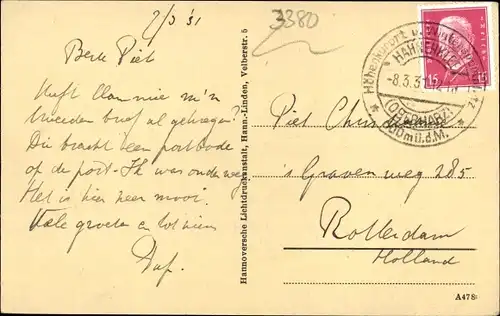 7/3 '31
3380
Beste Piet
Heeft Clan nie m'n
tweeden brief al gekregen?
Die bracht een postbode
op de post. Ik was onderweg.
Het is hier zeer mooi.
Vele groeten en tot ziens
Hannoversche Lichtdruckanstalt, Hann.-Linden, Velberstr. 5
Höhenkurort u. Wintersportplatz
HAHNENKLEE
-8.3.31
(OBERHARZ)
600mü.d.M.
15 15
Piet
's Gravenweg 285
Rotterdam
Holland
A478